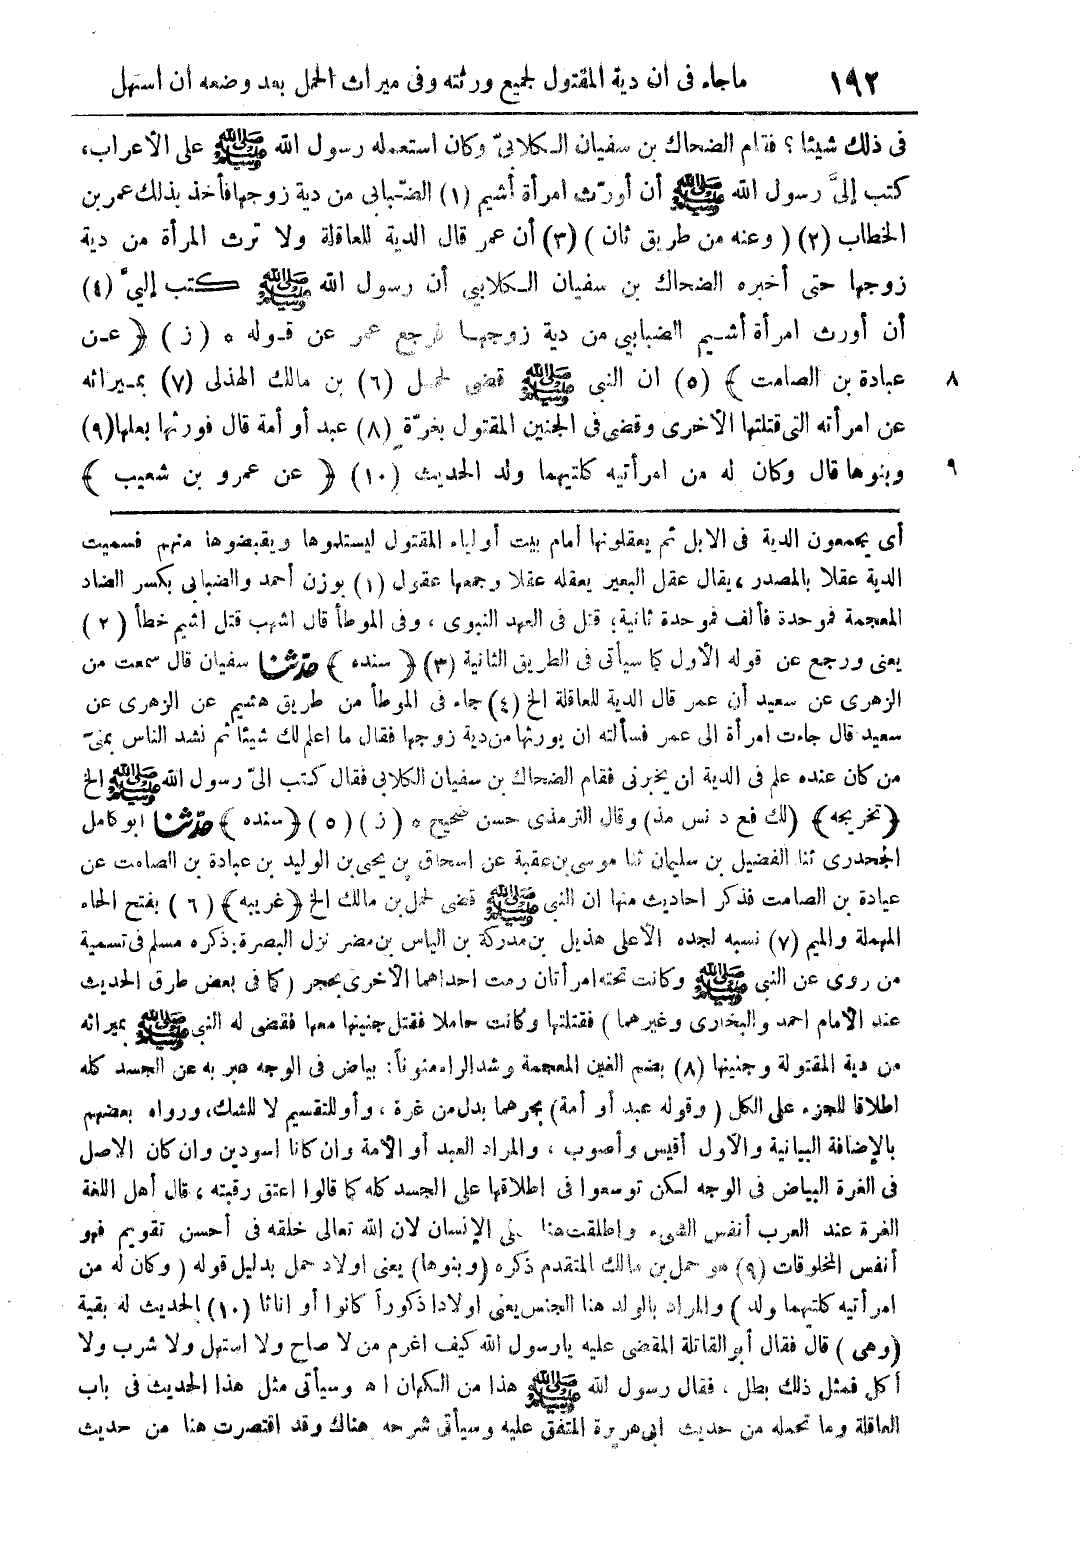 ١٩٢ ماجاء فى ان دية المقتول لجميع ورثته وفى ميراث الحمل بعد وضعه ان استهل
فى ذلك شيئا؟ فقام الضحاك بن سفيان الكلابىّ وكان استعمله رسول الله ﷺ على الأعراب،
كتب إلىَّ رسول الله ﷺ أن أورّث امرأة أشيم (١) الضّبابى من دية زوجها فأخذ بذلك عمر بن
الخطاب (٢) (وعنه من طريق ثان) (٣) أن عمر قال الدية للعاقلة ولا ترث المرأة من دية
زوجها حتى أخبره الضحاك بن سفيان الكلابي أن رسول الله ﷺ كتب إليَّ (٤)
أن أورث امرأة أشيم الضبابي من دية زوجها فرجع عمر عن قوله * (ز) ﴿عن
عبادة بن الصامت﴾ (٥) ان النبي ﷺ قضى لحمل (٦) بن مالك الهذلى (٧) بميراثه ٨
عن امرأته التى قتلتها الأخرى وقضى فى الجنين المقتول بغرّة (٨) عبد أو أمة قال فورثها بعلها (٩)
وبنوها قال وكان له من امرأتيه كلتيهما ولد الحديث (١٠) ﴿عن عمرو بن شعيب﴾ ٩
أى يجمعون الدية فى الابل ثم يعقلونها أمام بيت أولياء المقتول ليستلموها ويقبضوها منهم فسميت
الدية عقلا بالمصدر، يقال عقل البعير يعقله عقلا وجمعها عقول (١) بوزن أحمد والضبابى بكسر الضاد
المعجمة فموحدة فألف فموحدة ثانية؛ قتل فى العهد النبوى، وفى الموطأ قال اشهب قتل اشيم خطأ (٢)
يعنى ورجع عن قوله الأول كما سيأتى فى الطريق الثانية (٣) ﴿سنده﴾ حدّثنا سفيان قال سمعت من
الزهرى عن سعيد أن عمر قال الدية للعاقلة الخ (٤) جاء فى الموطأ من طريق هشيم عن الزهرى عن
سعيد قال جاءت امرأة الى عمر فسألته ان يورثها من دية زوجها فقال ما اعلم لك شيئا ثم نشد الناس بمنىّ
من كان عنده علم فى الدية ان يخبرنى فقام الضحاك بن سفيان الكلابى فقال كتب الىّ رسول الله ﷺ الخ
﴿تخريجه﴾ (لك فع د نس مذ) وقال الترمذى حسن صحيح * (ز) (٥) ﴿سنده﴾ حدّثنا ابو كامل
الجحدرى ثنا الفضيل بن سليمان ثنا موسى بن عقبة عن اسحاق بن يحيى بن الوليد بن عبادة بن الصامت عن
عيادة بن الصامت فذكر احاديث منها ان النبى ﷺ قضى لحمل بن مالك الخ ﴿غريبه﴾ (٦) بفتح الحاء
المهملة والميم (٧) نسبه لجده الأعلى هذيل بن مدركة بن الياس بن مضر نزل البصرة: ذكره مسلم فى تسمية
من روى عن النبى ﷺ وكانت تحته امرأتان رمت احداهما الأخرى بحجر (كما فى بعض طرق الحديث
عند الأمام احمد والبخارى وغيرهما) فقتلتها وكانت حاملا فقتل جنينها معها فقضى له النبى ﷺ بميراثه
من دية المقتولة وجنينها (٨) بضم الغين المعجمة وشد الراء منوناً: بياض فى الوجه عبر به عن الجسد كله
اطلاقا للجزء على الكل (وقوله عبد أو أمة) بجرهما بدل من غرة، وأو للتقسيم لا للشك، ورواه بعضهم
بالإضافة البيانية والأول أقيس وأصوب، والمراد العبد أو الأمة وان كانا اسودين وان كان الاصل
فى الغرة البياض فى الوجه لكن توسعوا فى اطلاقها على الجسد كله كما قالوا اعتق رقبته، قال أهل اللغة
الغرة عند العرب أنفس الشىء واطلقت هنا على الإنسان لان الله تعالى خلقه فى أحسن تقويم فهو
أنفس المخلوقات (٩) هو حمل بن مالك المتقدم ذكره (وبنوها) يعنى اولاد حمل بدليل قوله (وكان له من
امرأتيه كلتيهما ولد) والمراد بالولد هنا الجنس يعنى اولادا ذكوراً كانوا أو اناثا (١٠) الحديث له بقية
(وهى) قال فقال أبو القاتلة المقضى عليه يارسول الله كيف اغرم من لا صاح ولا استهل ولا شرب ولا
أكل فمثل ذلك بطل، فقال رسول الله ﷺ هذا من الكهان اه وسيأتى مثل هذا الحديث فى باب
العاقلة وما تحمله من حديث ابى هريرة المتفق عليه وسيأتى شرحه هناك وقد اقتصرت هنا من حديث